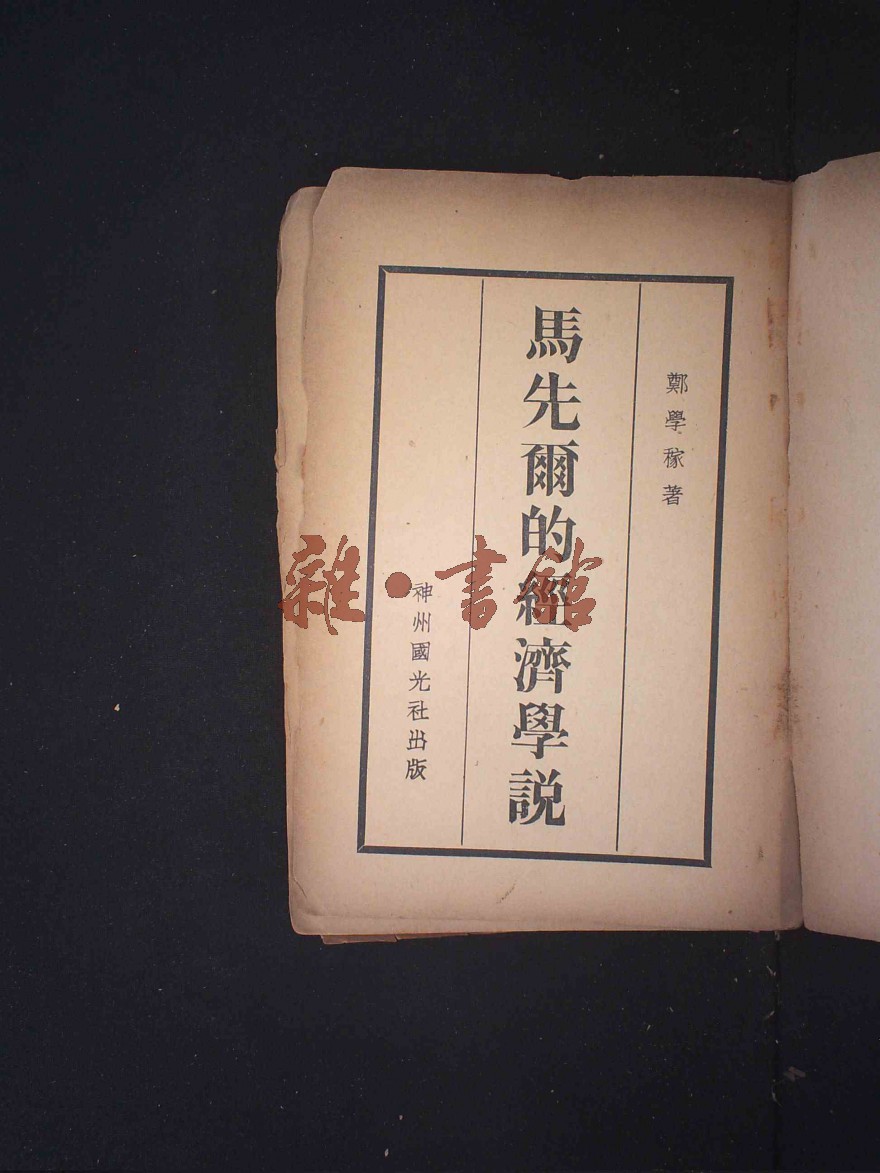 鄭學稼著
馬先爾的經濟學説
神州國光社出版
雜·書館